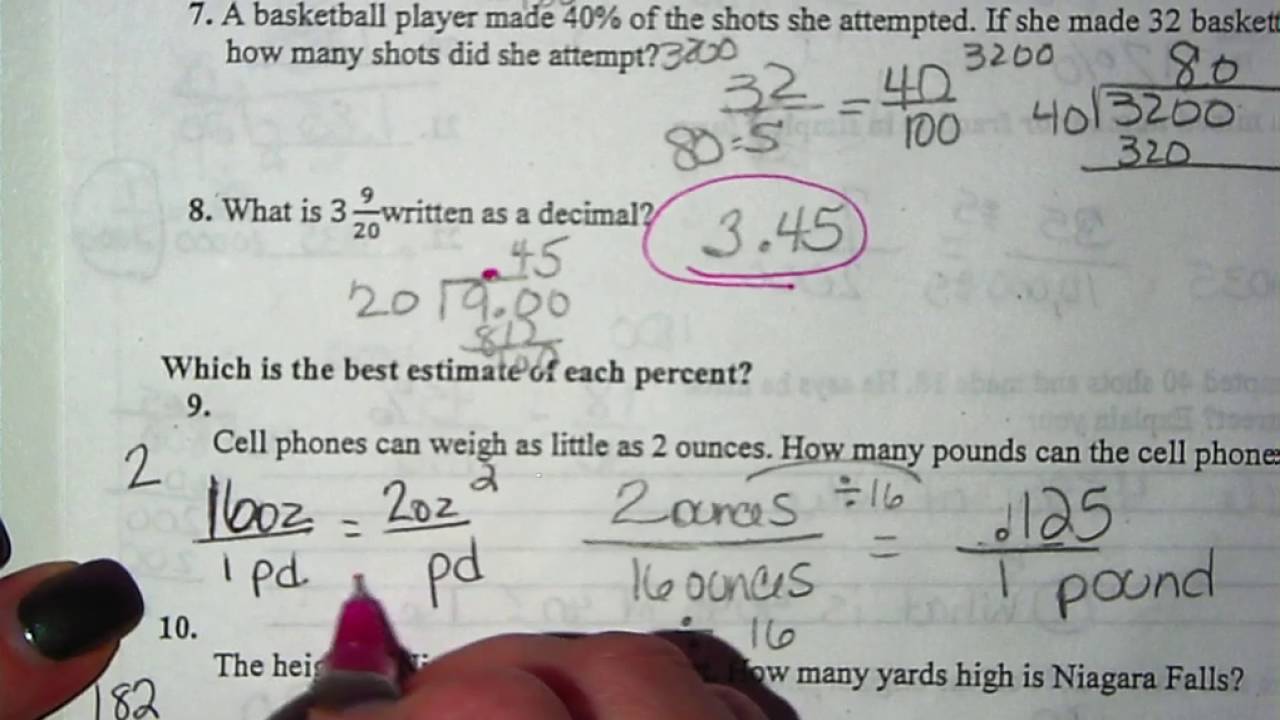 7. A basketball player made 40% of the shots she attempted. If she made 32 baskets
how many shots did she attempt? 3200
32/80=5 = 40/100
3200
80
40)3200
320
8. What is 3 9/20 written as a decimal?
3.45
.45
20)9.00
Which is the best estimate of each percent?
9.
Cell phones can weigh as little as 2 ounces. How many pounds can the cell phone
2
16oz/1 pd = 2oz/pd 2
2 ounces ÷16
16 ounces
÷ 16
= .125
1 pound
10.
The
How many yards high is Niagara Falls?
182